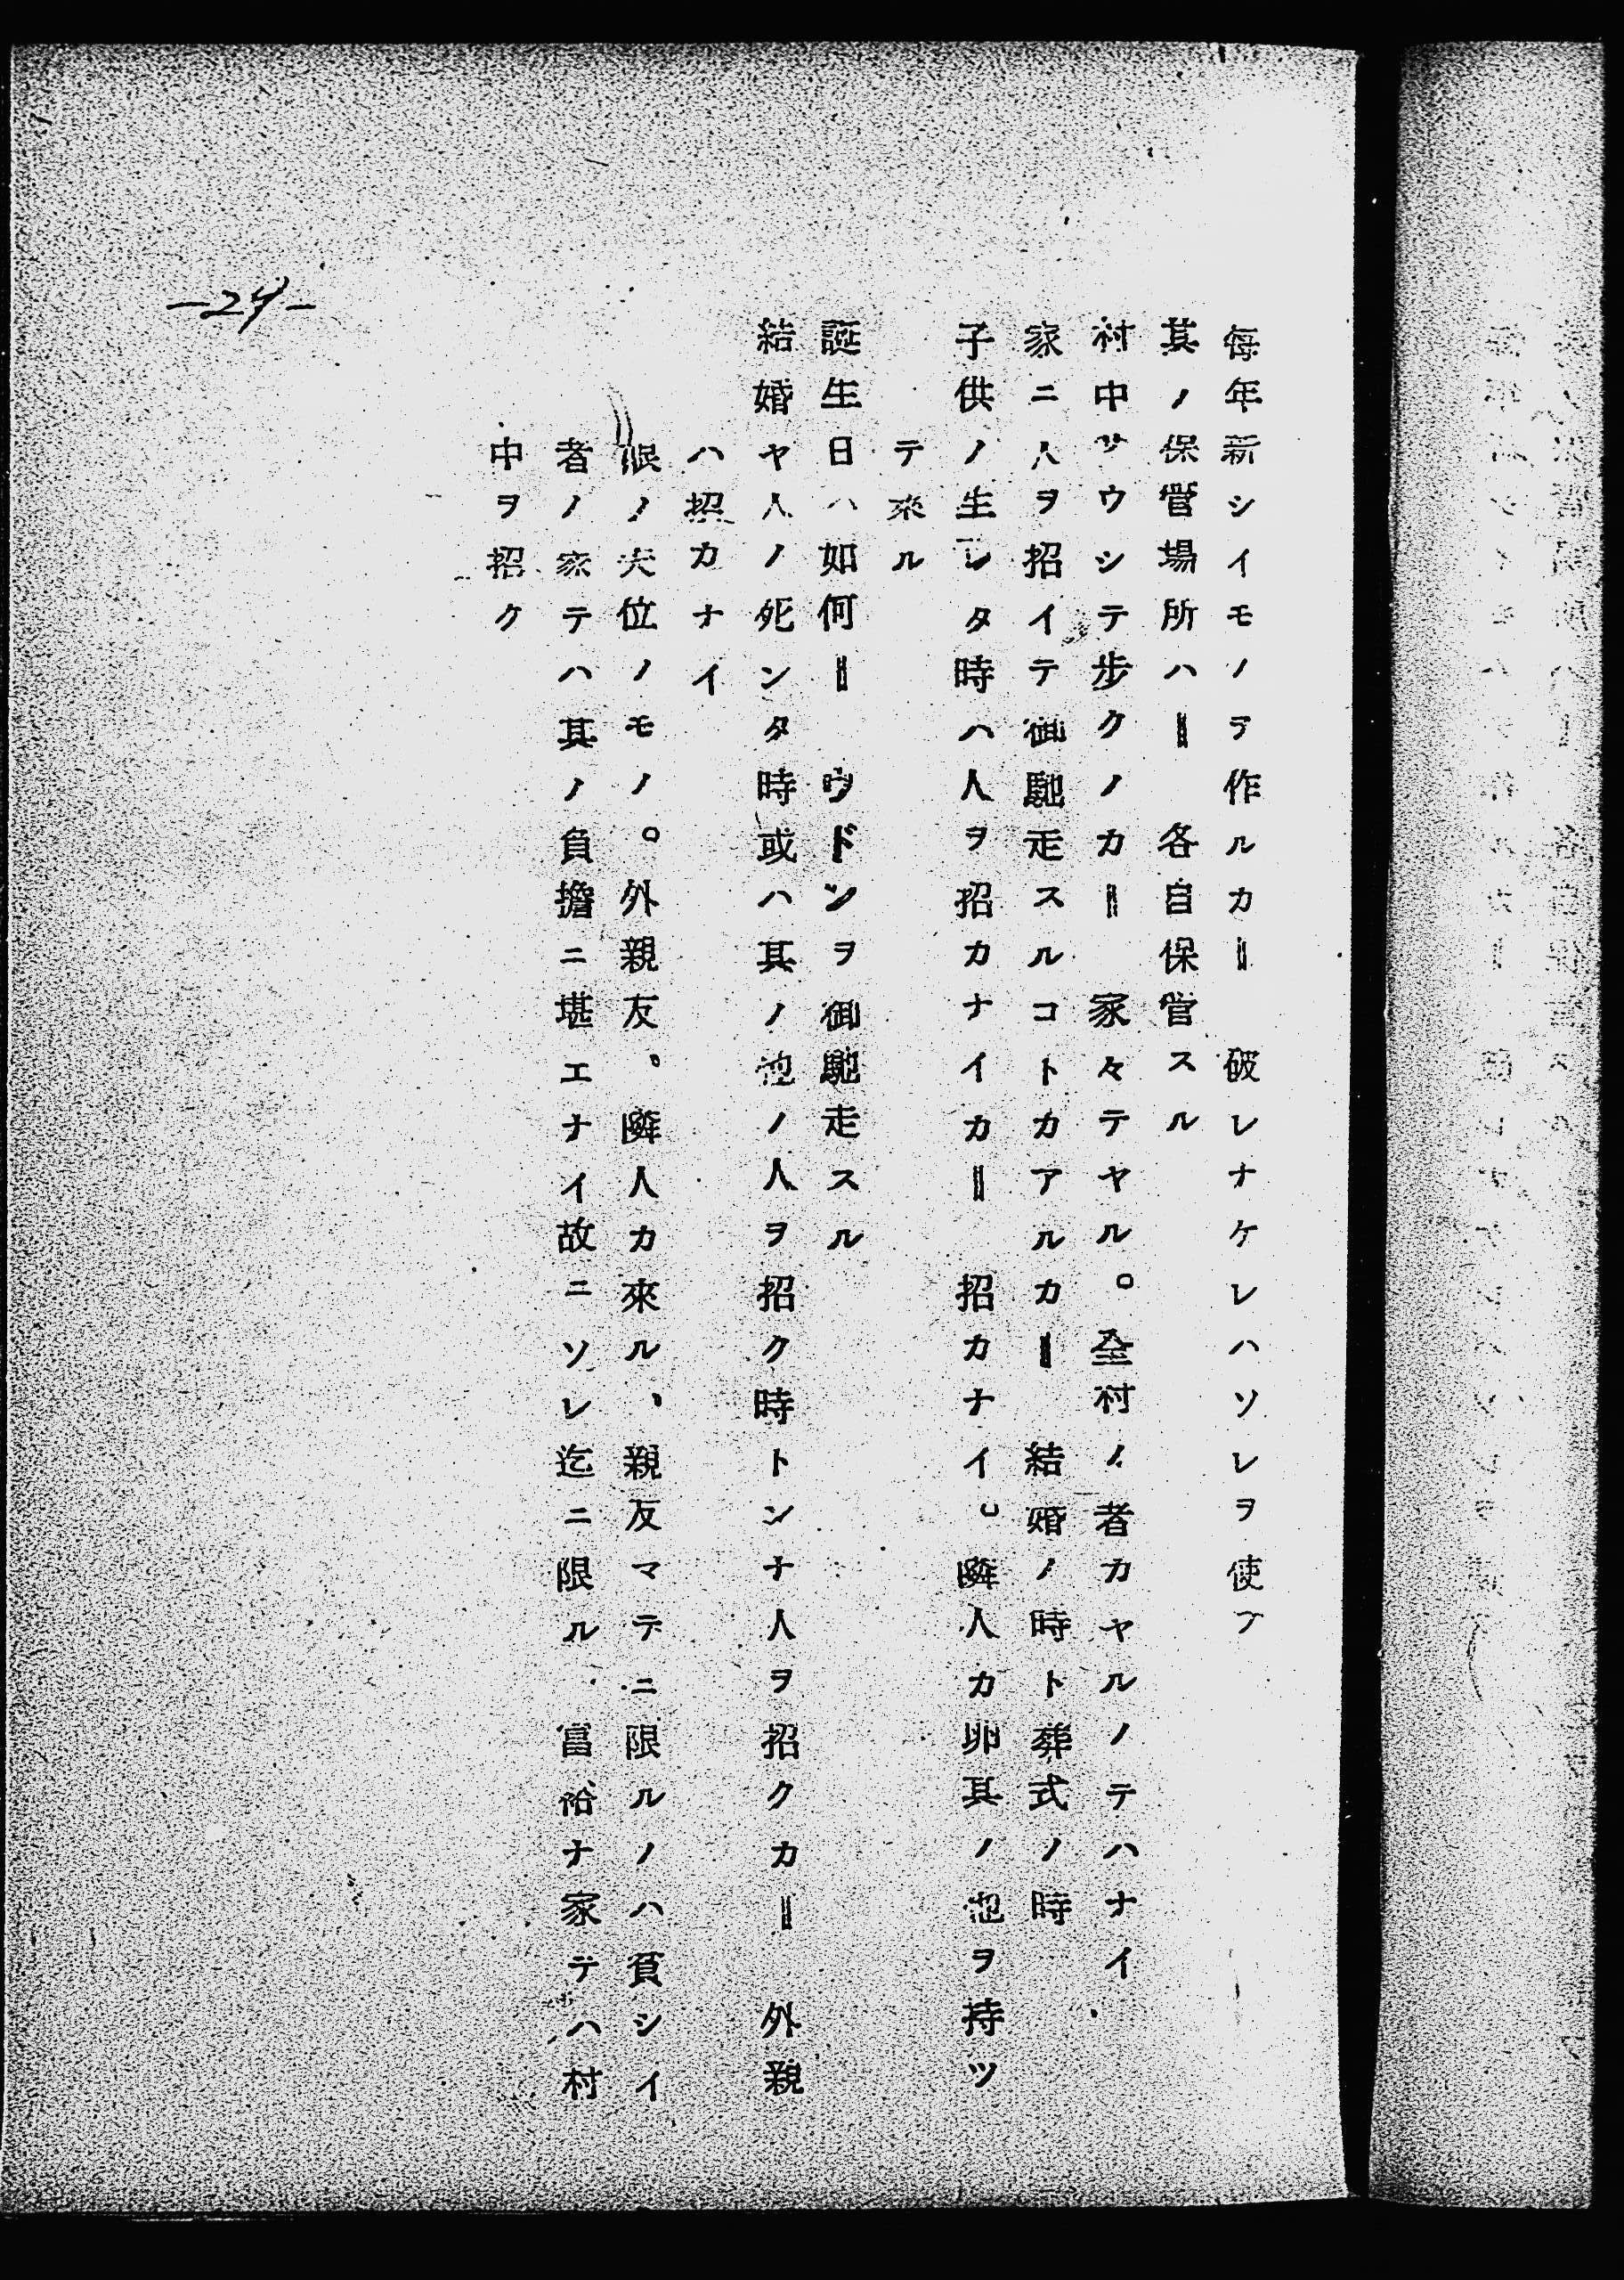 毎年新シイモノヲ作ルカ＝　破レナケレハソレヲ使フ
其ノ保管場所ハ＝　各自保管スル
村中サウシテ歩クノカ＝　家々テヤル。全村ノ者カヤルノテハナイ
家ニ人ヲ招イテ御馳走スルコトカアルカ＝　結婚ノ時ト葬式ノ時
子供ノ生レタ時ハ人ヲ招カナイカ＝　招カナイ。隣人カ卵其ノ他ヲ持ツ
テ來ル
誕生日ハ如何＝　ウドンヲ御馳走スル
結婚ヤ人ノ死ンタ時或ハ其ノ他ノ人ヲ招ク時トンナ人ヲ招クカ＝　外親
ハ招カナイ
ノ位ノモノ。外親友、隣人カ來ル、親友マテニ限ルノハ貧シイ
者ノ家テハ其ノ負擔ニ堪エナイ故ニソレ迄ニ限ル、富裕ナ家デハ村
中ヲ招ク
—24—